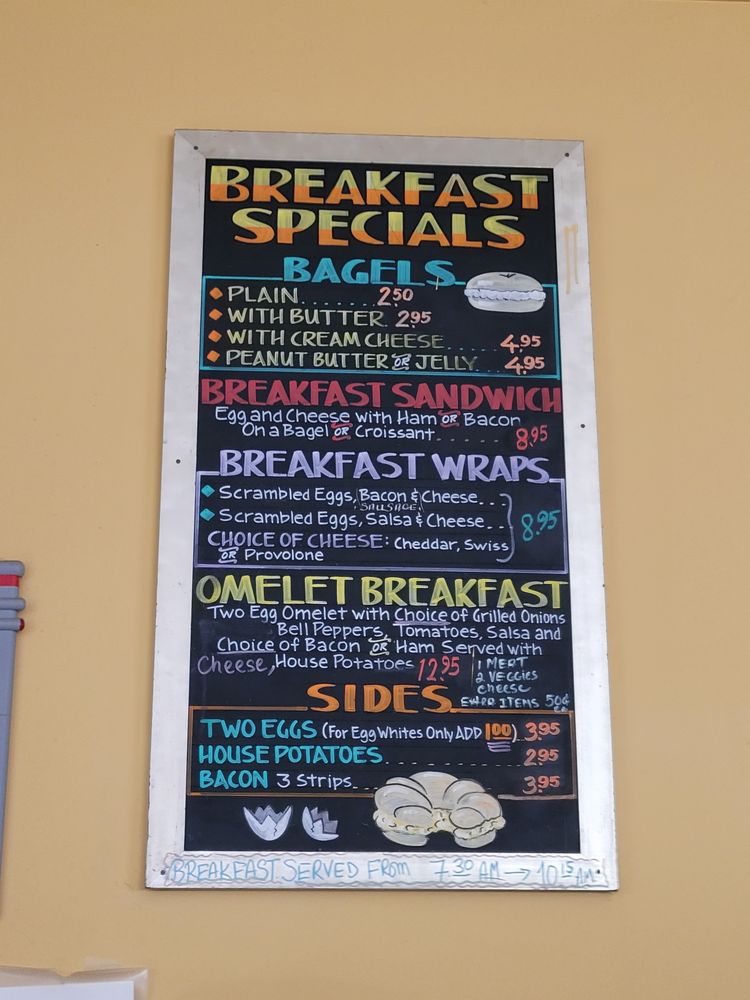 BREAKFAST
SPECIALS
BAGELS
PLAIN......2.50
WITH BUTTER. 2.95
WITH CREAM CHEESE........4.95
PEANUT BUTTER OR JELLY...4.95
BREAKFAST SANDWICH
Egg and Cheese with Ham OR Bacon
On a Bagel OR Croissant........8.95
BREAKFAST WRAPS
Scrambled Eggs, Bacon & Cheese...
SAUSAGE
Scrambled Eggs, Salsa & Cheese...
8.95
CHOICE OF CHEESE: Cheddar, Swiss
OR Provolone
OMELET BREAKFAST
Two Egg Omelet with Choice of Grilled Onions
Bell Peppers, Tomatoes, Salsa and
Choice of Bacon OR Ham Served with
Cheese, House Potatoes 12.95
1 MEAT
2 VEGGIES
cheese
EXTRA ITEMS 50¢
SIDES
TWO EGGS (For Egg Whites Only ADD 1.00) 3.95
HOUSE POTATOES........2.95
BACON 3 Strips........3.95
BREAKFAST SERVED FROM 7:30 AM → 10:15 AM